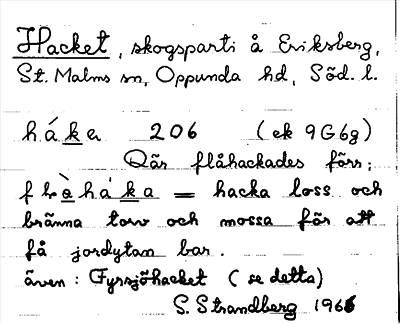 Hacket, skogsparti å Eriksberg,
St. Malms sn, Oppunda hd, Söd. l.
háka 206 (ek 9G6g)
Där flåhackades förr;
flàháka = hacka loss och
bränna torv och mossa för att
få jordytan bar.
även: Fyrsjöhacket (se detta)
S. Strandberg 1966